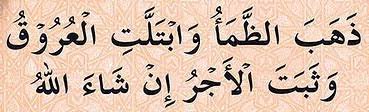 ذَهَبَ الظَّمَأُ وَابْتَلَّتِ الْعُرُوْقُ
وَثَبَتَ الْأَجْرُ إِنْ شَاءَ اللهُ